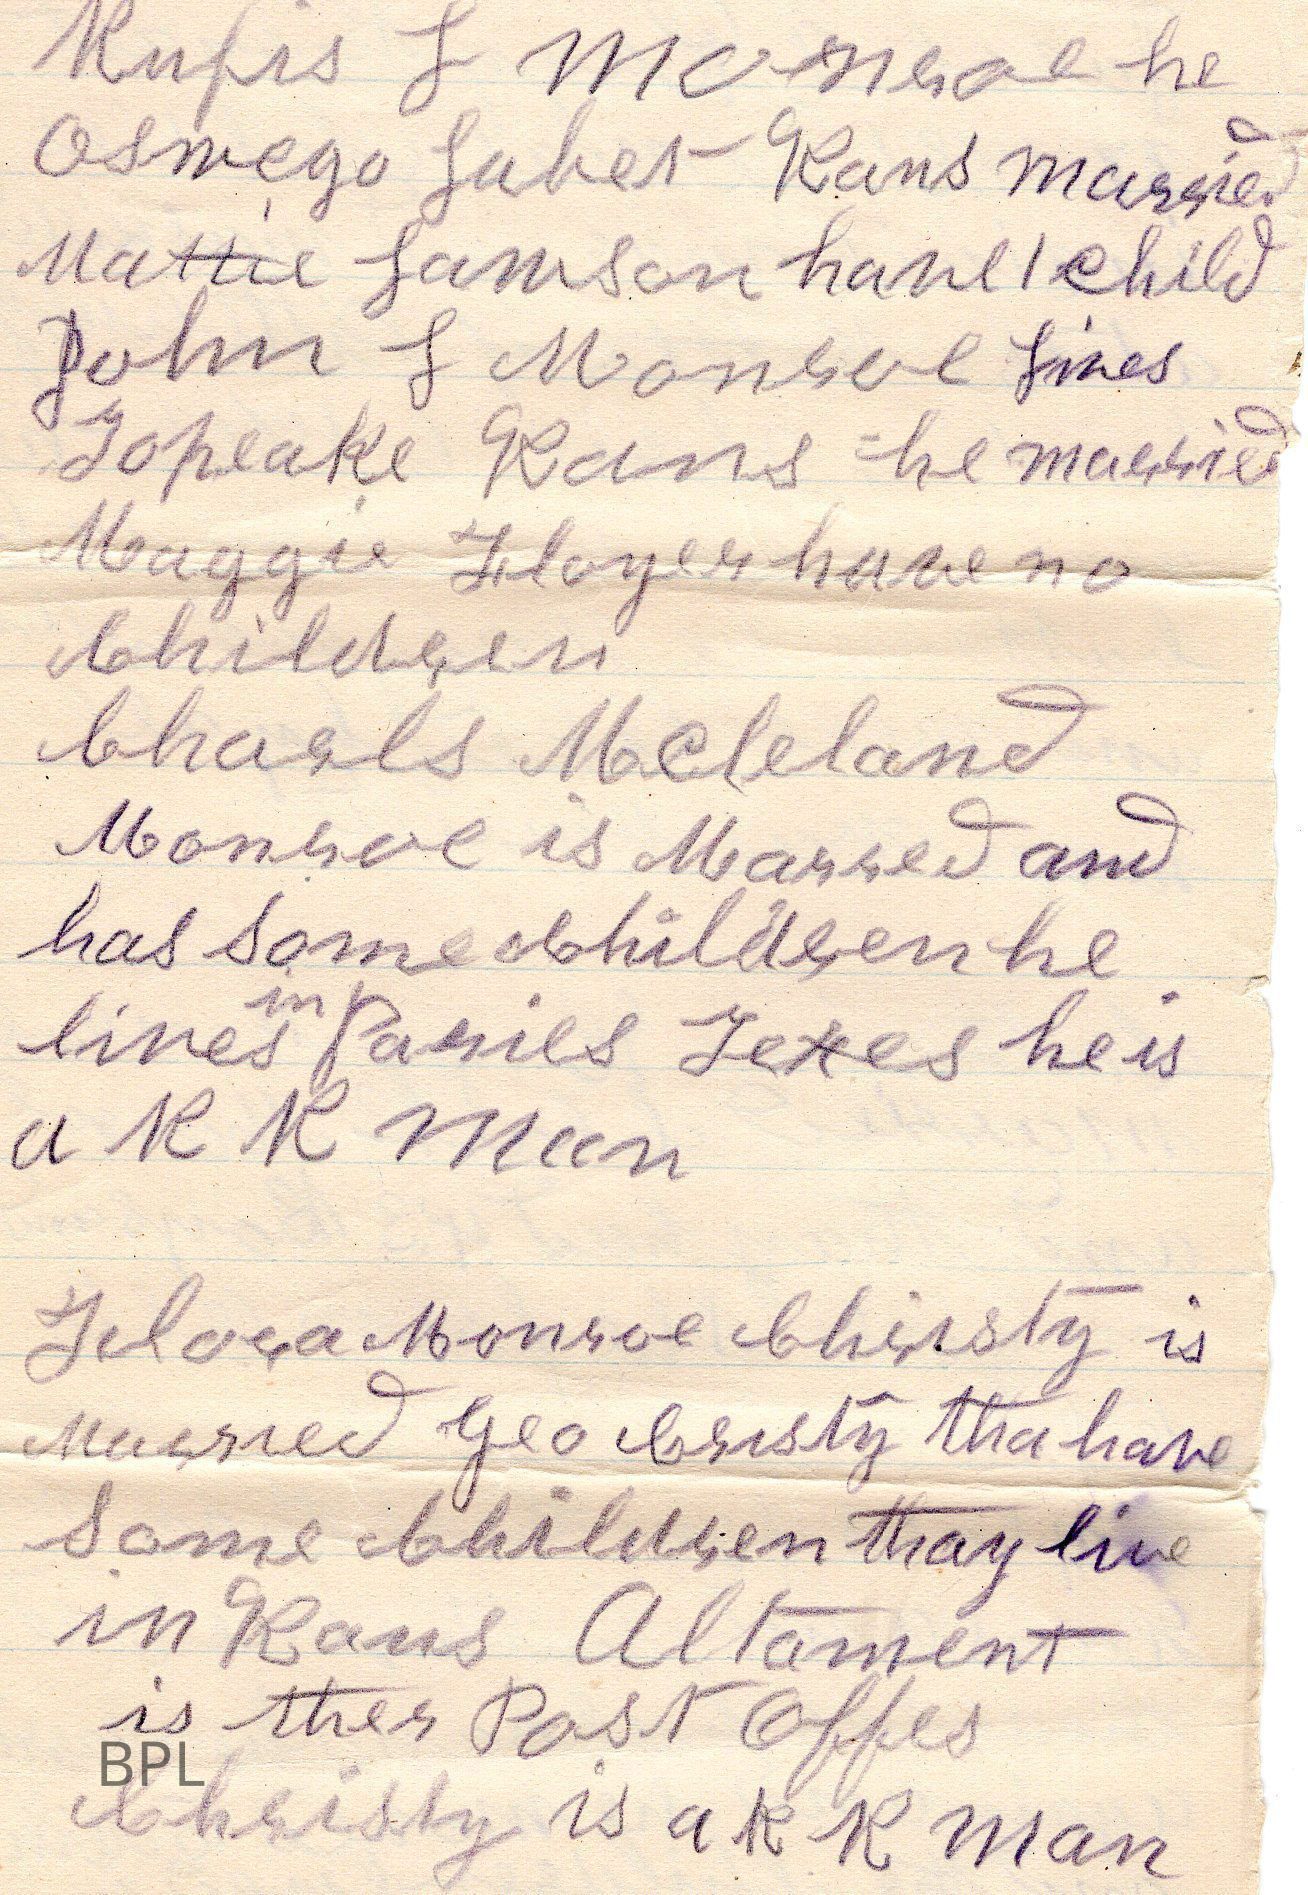 Rufis L Monroe he
Oswego Labet Kans married
Mattie Lamson have 1 child
John L Monroe Lives
Topeake Kans - he married
Maggie Floyer have no
Children
Charls McCleland
Monroe is Marred and
has some Children he
lives in Paries Texes he is
a R R Man
Flora Monroe Chirsty is
Married Geo Cristy tha have
Some Children thay live
in Kans Altament
is ther Post Offes
BPL
Christy is a R R Man